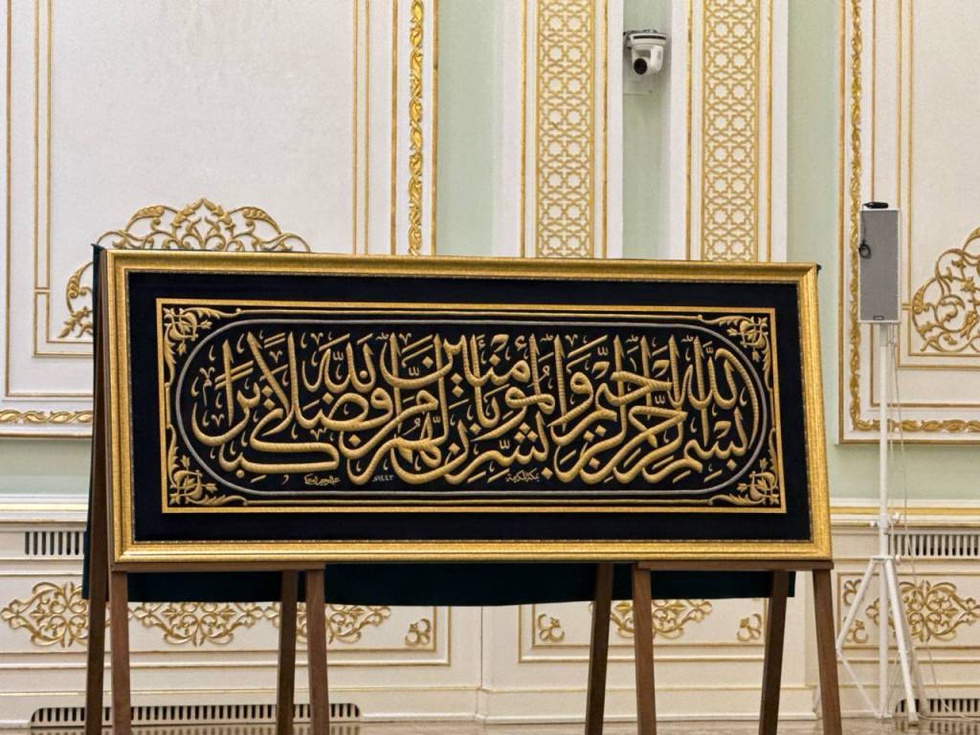 بسم الله الرحمن الرحيم وبشر المؤمنين بأن لهم من الله فضلا كبيرا
بمكة المكرمة ١٤٤٣هـ